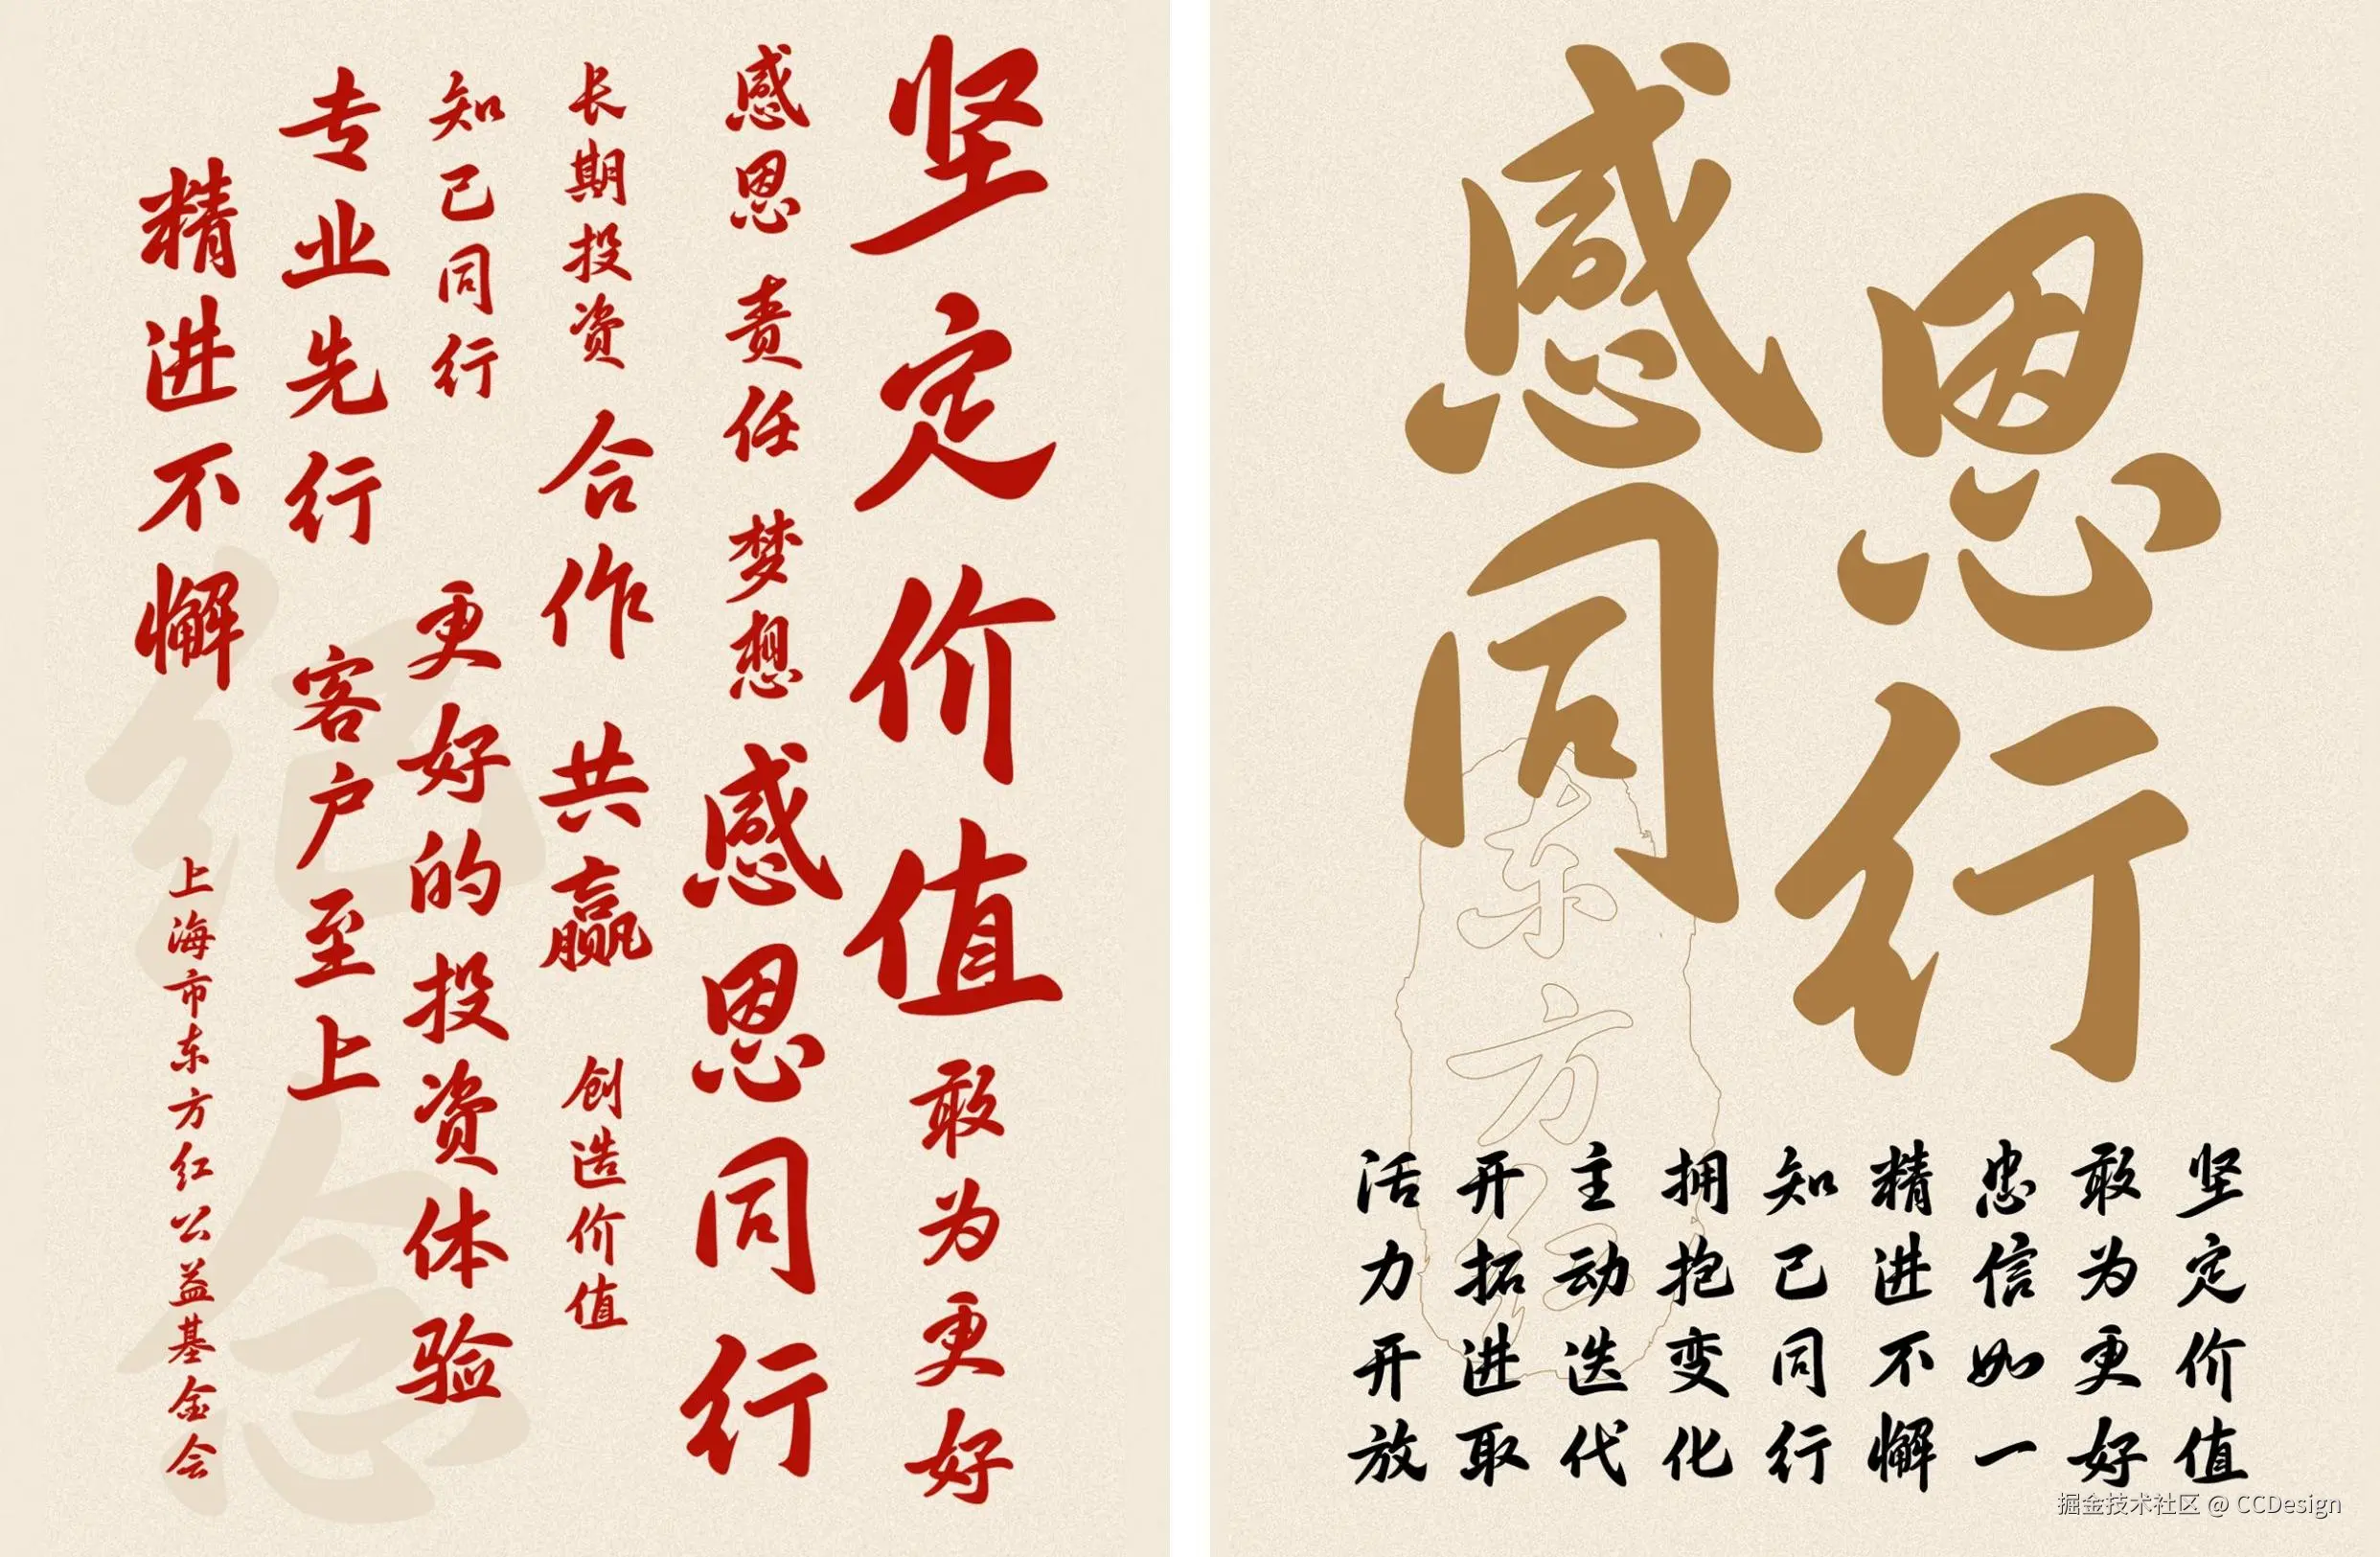 坚定价值 敢为更好
感恩 责任 梦想 感恩同行
长期投资 合作 共赢 创造价值
知己同行 更好的投资体验
专业先行 客户至上
精进不懈 上海市东方红公益基金会
纪念
感恩
同行
东方红
坚定价值
敢为更好
忠信如一
精进不懈
知己同行
拥抱变化
主动迭代
开拓进取
活力开放
掘金技术社区 @ CCDesign